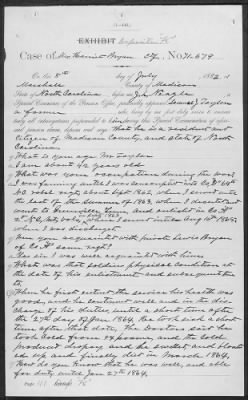 EXHIBIT
Case of Mrs Harriet Bryan No. 71.679
On this 8th day of July 1882, at
Marshall County of Madison
State of North Carolina before me Jno
Special Examiner of the Pension Office, personally appeared Samuel J. Taylor
a farmer who, being by me first duly sworn to answer
truly all interrogatories propounded to him
pension claim, deposes and says: That he is a resident and
Citizen of Madison County and State of North
Carolina
What is your age Mr Taylor
I am about years old
What was your occupation during the war
I was farming until I was conscripted into Co.
NC rebel regt about Sept 1862, when I went into
the last of the summer of 1863, when I deserted and
went to Knoxville Tenn, and enlisted in Co. H
until Aug 1865,
when I was discharged
Were you acquainted with private Lewis Bryan
of Co. H same regt?
Yes sir I was well acquainted with him
What was that soldiers physical condition at
the date of his enlistment and subsequent
to,
When he first entered the service his health was
good, and he continued well and in the dis-
charge of his duties, until a short time after
the 27th day of Jan 1864. He took sick a short
time after that date, The Doctors said he
took cold from and the cold
produced dropsy and he swelled and bloat-
ed up and finally died in March 1864,
How do you know that he was well, and able
for duty until Jan 27th 1864,